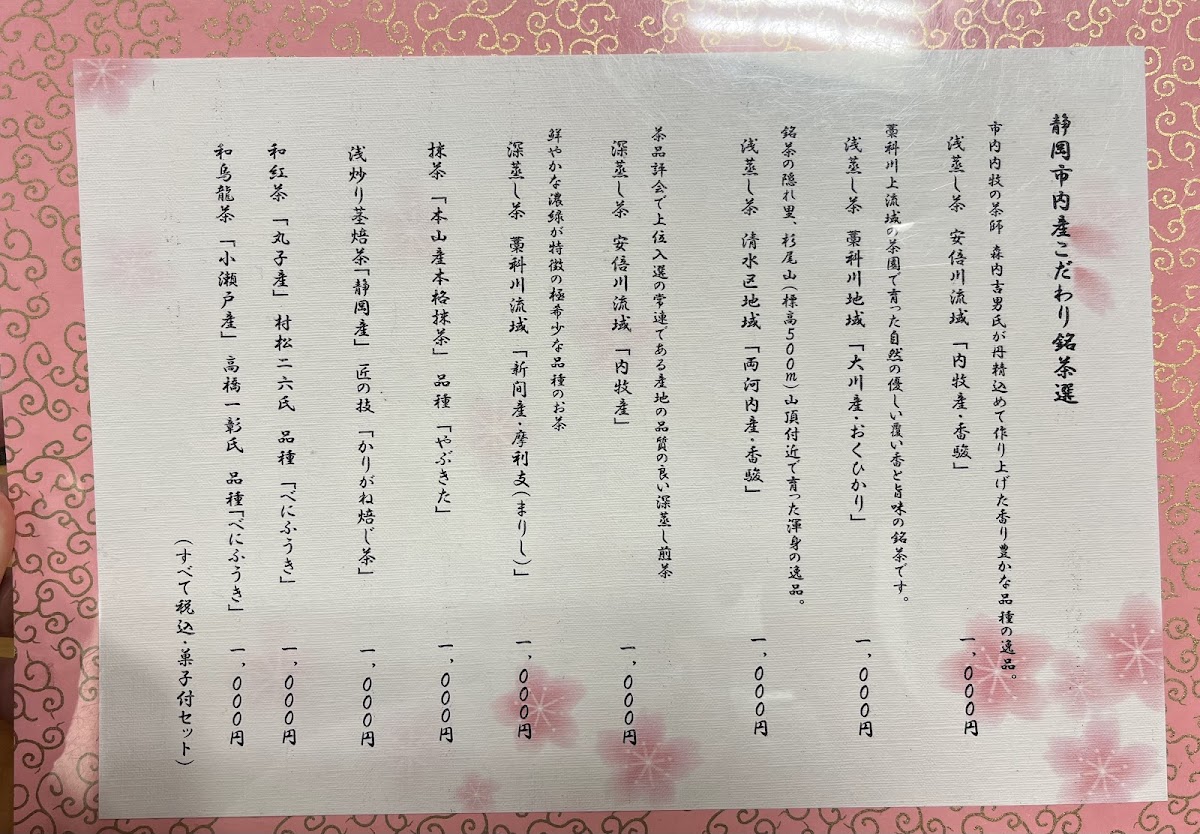 静岡市内産こだわり銘茶選
市内内牧の茶師 森内吉男氏が丹精込めて作り上げた香り豊かな品種の逸品。
浅蒸し茶 安倍川流域「内牧産・香駿」 一,000円
藁科川上流域の茶園で育った自然の優しい覆い香と旨味の銘茶です。
浅蒸し茶 藁科川地域「大川産・おくひかり」 一,000円
銘茶の隠れ里、杉尾山(標高500m)山頂付近で育った渾身の逸品。
浅蒸し茶 清水区地域「両河内産・香駿」 一,000円
茶品評会で上位入選の常連である産地の品質の良い深蒸し煎茶
深蒸し茶 安倍川流域「内牧産」 一,000円
鮮やかな濃緑が特徴の極希少な品種のお茶
深蒸し茶 藁科川流域「新間産・摩利支(まりし)」 一,000円
抹茶「本山産本格抹茶」品種「やぶきた」 一,000円
浅炒り茎焙茶「静岡産」匠の技「かりがね焙じ茶」 一,000円
和紅茶「丸子産」村松二六氏 品種「べにふうき」 一,000円
和烏龍茶「小瀬戸産」高橋一彰氏 品種「べにふうき」 一,000円
(すべて税込・菓子付セット)